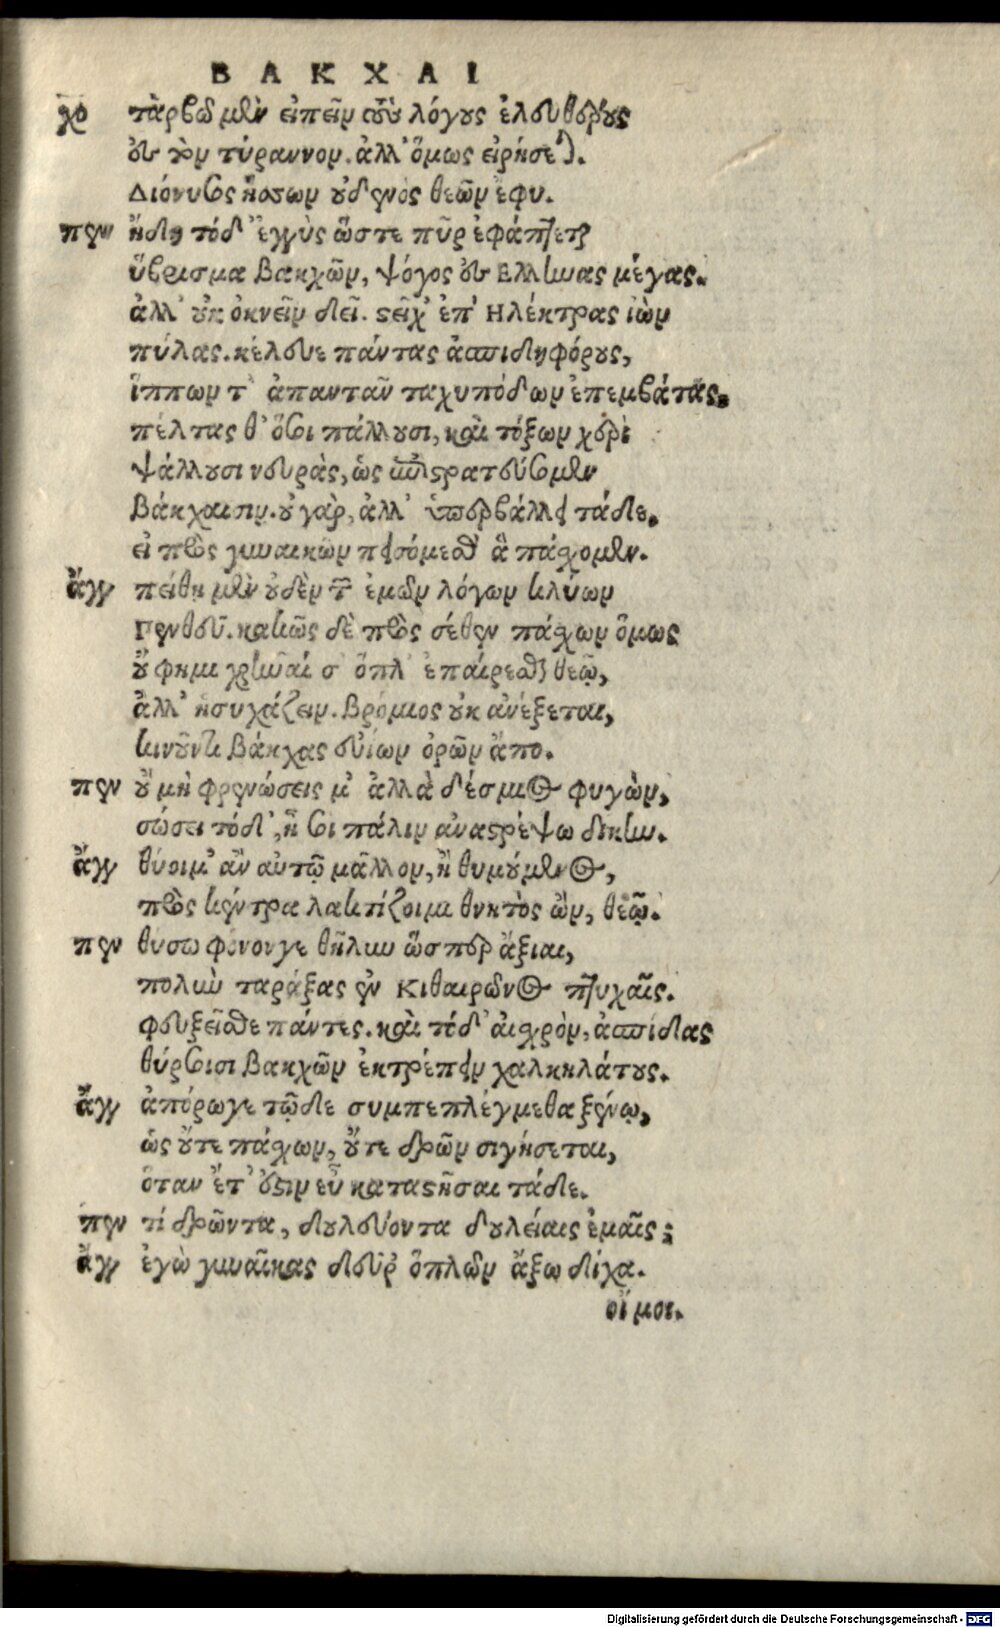 ΒΑΚΧΑΙ
χο ταρβῶ μὲν εἰπεῖν τοὺς λόγους ἐλευθέρους
ἐς τὸν τύραννον. ἀλλ' ὅμως εἰρήσεται.
Διόνυσος ἥσσων οὐδενὸς θεῶν ἔφυ.
πεν ἤδη τόδ' ἐγγὺς ὥστε πῦρ ἐφάπτεται
ὕβρισμα Βακχῶν, ψόγος ἐς Ελληνας μέγας.
ἀλλ' οὐκ ὀκνεῖν δεῖ. στεῖχ' ἐπ' Ηλέκτρας ἰὼν
πύλας. κέλευε πάντας ἀσπιδηφόρους,
ἵππων τ' ἀπαντᾶν ταχυπόδων ἐπεμβάτας.
πέλτας θ' ὅσοι πάλλουσι, καὶ τόξων χερὶ
ψάλλουσι νευρὰς, ὡς ἐπιστρατεύσομεν
Βάκχαισιν. οὐ γὰρ, ἀλλ' ὑπερβάλλει τάδε.
εἰ πρὸς γυναικῶν πεισόμεσθ' ἃ πάσχομεν.
ἄγγ πείθη μὲν οὐδὲν τῶν ἐμῶν λόγων κλύων
Πενθεῦ. κακῶς δὲ πρὸς σέθεν πάσχων ὅμως
οὔ φημι χρῆναί σ' ὅπλ' ἐπαίρεσθαι θεῷ,
ἀλλ' ἡσυχάζειν. Βρόμιος οὐκ ἀνέξεται,
κινοῦντι Βάκχας εὐΐων ὀρῶν ἄπο.
πεν οὐ μὴ φρενώσεις μ' ἀλλὰ δέσμιος φυγὼν,
σώσει τόδ', ἢ σοι πάλιν ἀναστρέψω δίκην.
ἄγγ θύοιμ' ἂν αὐτῷ μᾶλλον, ἢ θυμούμενος,
πρὸς κέντρα λακτίζοιμι θνητὸς ὢν, θεῷ.
πεν θύσω φόνον γε θῆλυν ὥσπερ ἄξιαι,
πολὺν ταράξας ἐν Κιθαιρῶνος πτυχαῖς.
φευξεῖσθε πάντες. καὶ τόδ' αἰσχρὸν, ἀσπίδας
θύρσοισι Βακχῶν ἐκτρέπειν χαλκηλάτους.
ἄγγ ἀπόρῳ γε τῷδε συμπεπλέγμεθα ξένῳ,
ὡς οὔτε πάσχων, οὔτε δρῶν σιγήσεται,
ὅταν ἔτ' ἔστιν εὖ καταστῆσαι τάδε.
πεν τί δρῶντα, δουλεύοντα δουλείαις ἐμαῖς;
ἄγγ ἐγὼ γυναῖκας δεῦρ' ὅπλων ἄξω δίχα.
οἴ μοι.
Digitalisierung gefördert durch die Deutsche Forschungsgemeinschaft - DFG